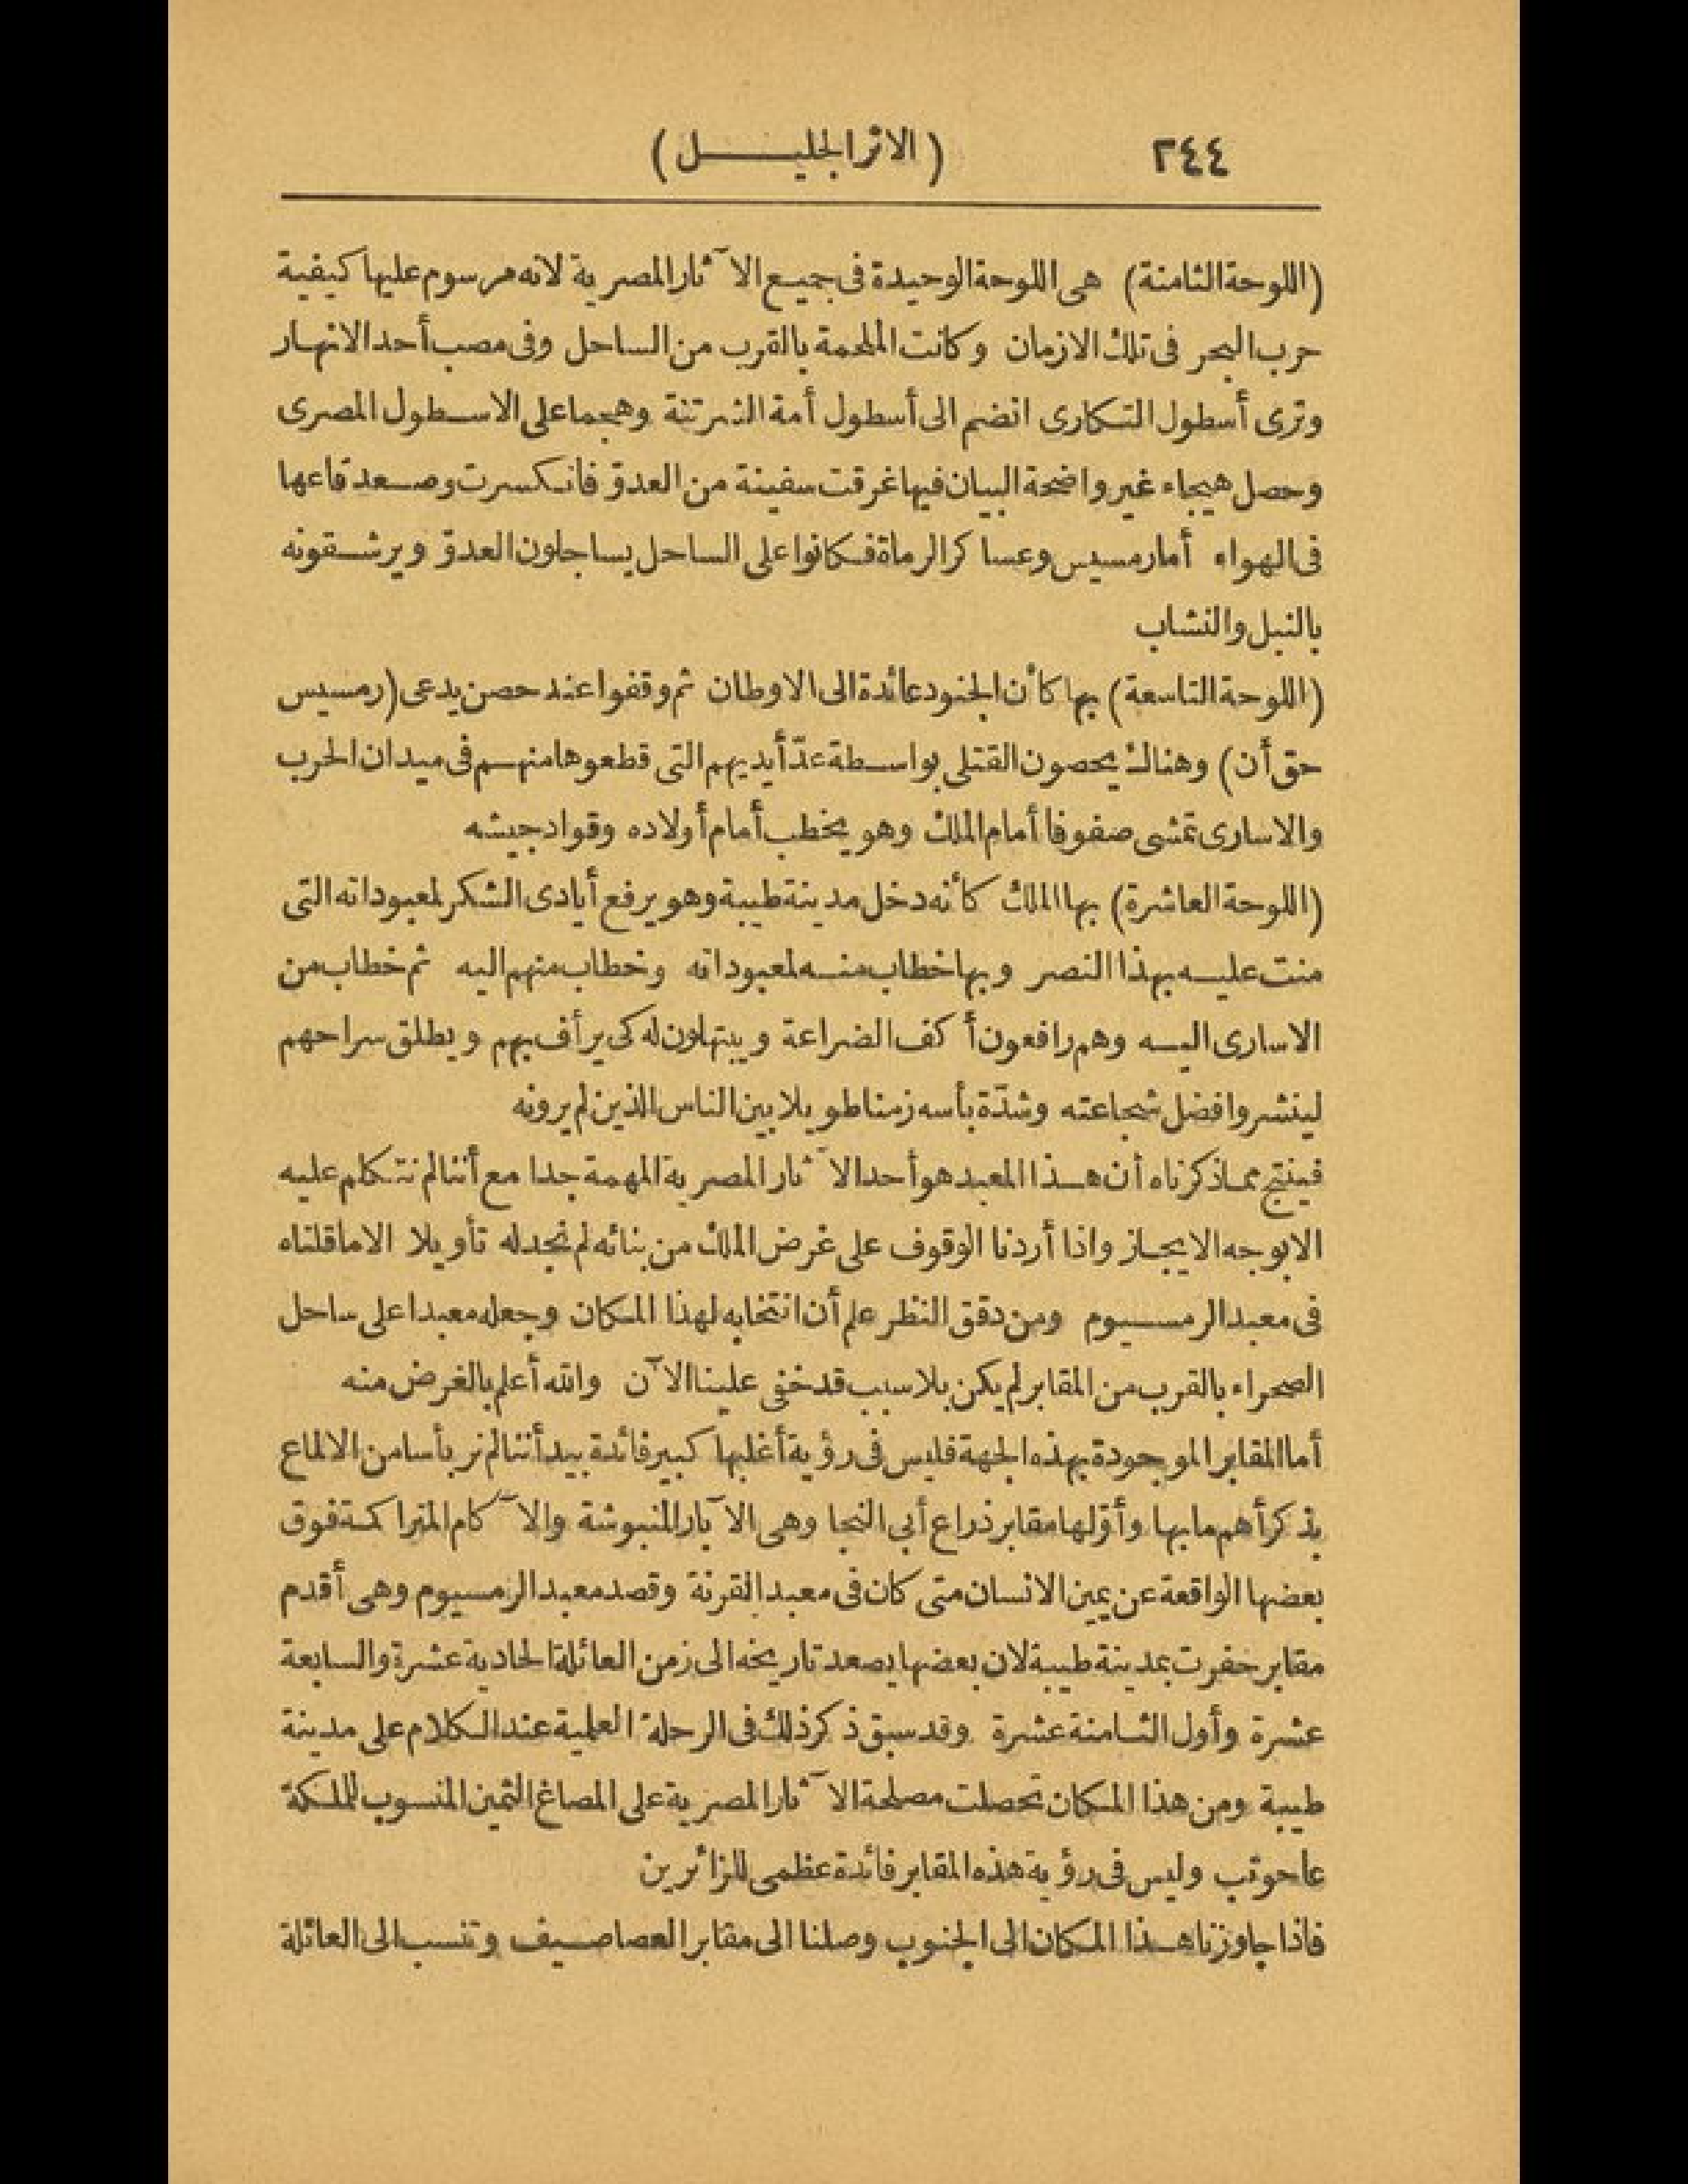 ٢٤٤ (الاثر الجليل)
(اللوحة الثامنة) هى اللوحة الوحيدة فى جميع الآثار المصرية لانه مرسوم عليها كيفية
حرب البحر فى تلك الازمان وكانت الملحمة بالقرب من الساحل وفى مصب أحد الانهار
وترى أسطول التكارى انضم الى أسطول أمة الشرتنة وهجما على الاسطول المصرى
وحصل هيجاء غير واضحة البيان فيها غرقت سفينة من العدوّ فانكسرت وصعد قاعها
فى الهواء أما رمسيس وعساكر الرماة فكانوا على الساحل يساجلون العدوّ ويرشقونه
بالنبل والنشاب
(اللوحة التاسعة) بها كأن الجنود عائدة الى الاوطان ثم وقفوا عند حصن يدعى (رمسيس
حق أن) وهناك يحصون القتلى بواسطة عدّ أيديهم التى قطعوها منهم فى ميدان الحرب
والاسارى تمشى صفوفا أمام الملك وهو يخطب أمام أولاده وقواد جيشه
(اللوحة العاشرة) بها الملك كأنه دخل مدينة طيبة وهو يرفع أيادى الشكر لمعبوداته التى
منت عليه بهذا النصر وبها خطاب منه لمعبوداته وخطاب منهم اليه ثم خطاب من
الاسارى اليه وهم رافعون أكف الضراعة ويبتهلون له كى يرأف بهم ويطلق سراحهم
لينشروا فضل شجاعته وشدّة بأسه زمنا طويلا بين الناس الذين لم يرونه
فينتج مما ذكرناه أن هذا المعبد هو أحد الآثار المصرية المهمة جدا مع أننا لم نتكلم عليه
الا بوجه الايجاز واذا أردنا الوقوف على غرض الملك من بنائه لم نجد له تأويلا الا ما قلناه
فى معبد الرمسيوم ومن دقق النظر علم أن انتخابه لهذا المكان وجعله معبدا على ساحل
الصحراء بالقرب من المقابر لم يكن بلا سبب قد خفى علينا الآن والله أعلم بالغرض منه
أما المقابر الموجودة بهذه الجهة فليس فى رؤية أغلبها كبير فائدة بيد أننا لم نر بأسا من الالماع
بذكر أهم ما بها وأوّلها مقابر ذراع أبى النجا وهى الآبار المنبوشة والآكام المتراكمة فوق
بعضها الواقعة عن يمين الانسان متى كان فى معبد القرنة وقصد معبد الرمسيوم وهى أقدم
مقابر حفرت بمدينة طيبة لان بعضها يصعد تاريخه الى زمن العائلة الحادية عشرة والسابعة
عشرة وأول الثامنة عشرة وقد سبق ذكر ذلك فى الرحلة العلمية عند الكلام على مدينة
طيبة ومن هذا المكان تحصلت مصلحة الآثار المصرية على المصاغ الثمين المنسوب للملكة
عاحوتب وليس فى رؤية هذه المقابر فائدة عظمى للزائرين
فاذا جاوزنا هذا المكان الى الجنوب وصلنا الى مقابر العصاصيف وتنسب الى العائلة